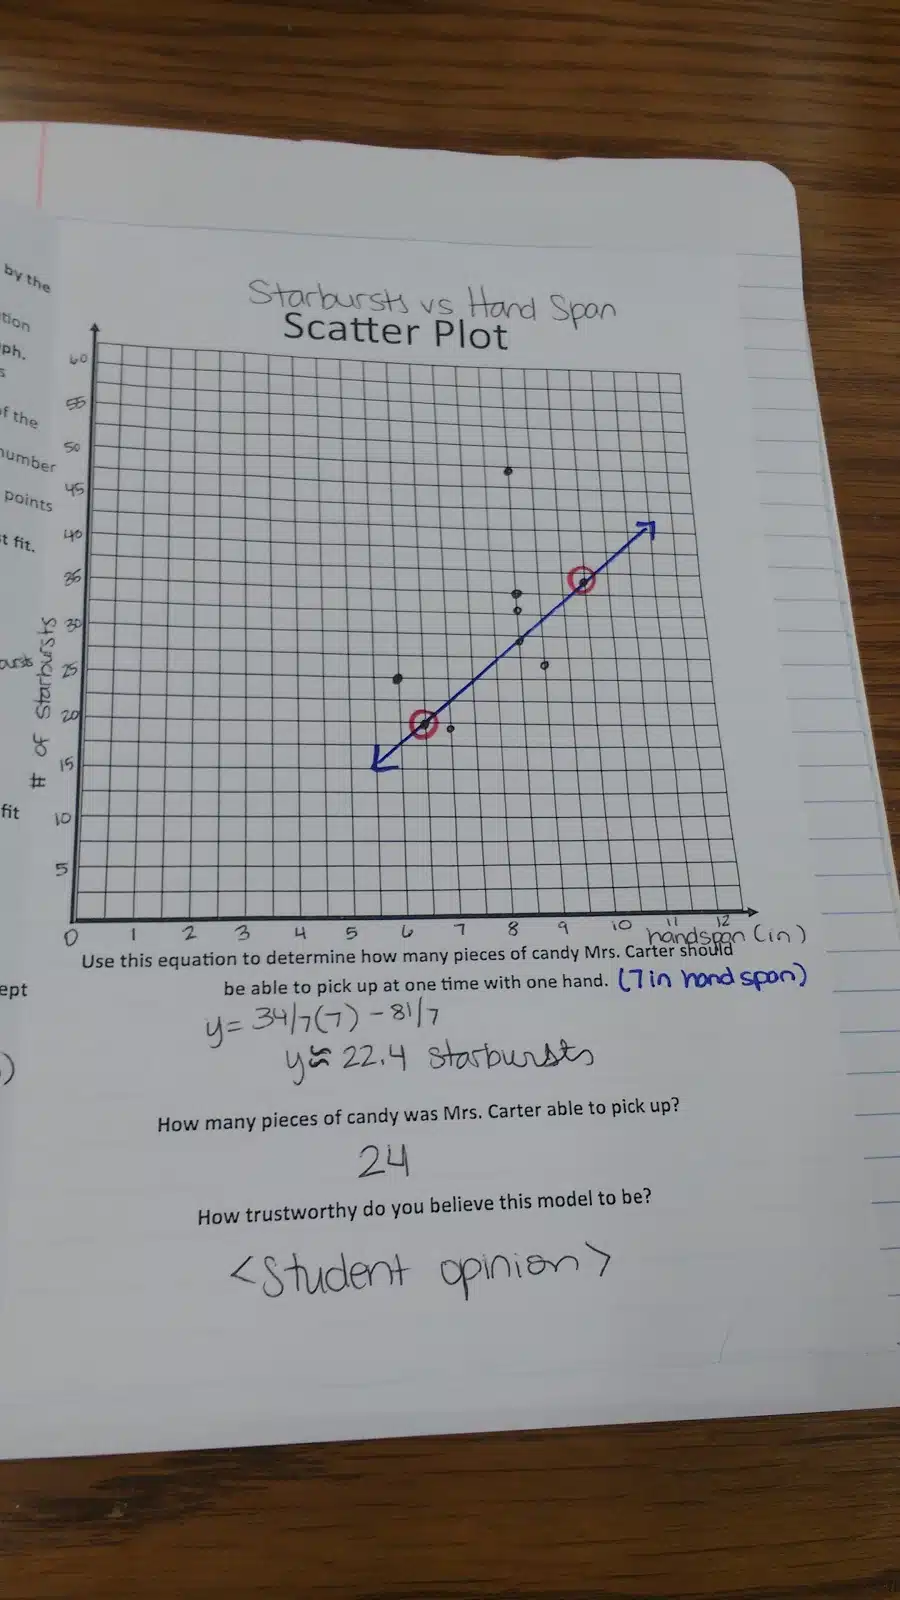 by the
tion
ph.
s
of the
number
points
t fit.
ursts
fit
ept
)
Starbursts vs Hand Span
Scatter Plot
60
55
50
45
40
35
30
25
20
15
10
5
# of Starbursts
0 1 2 3 4 5 6 7 8 9 10 11 12
handspan (in)
Use this equation to determine how many pieces of candy Mrs. Carter should
be able to pick up at one time with one hand. (7 in hand span)
y= 34/7(7) - 81/7
y≈ 22.4 starbursts
How many pieces of candy was Mrs. Carter able to pick up?
24
How trustworthy do you believe this model to be?
<Student opinion>